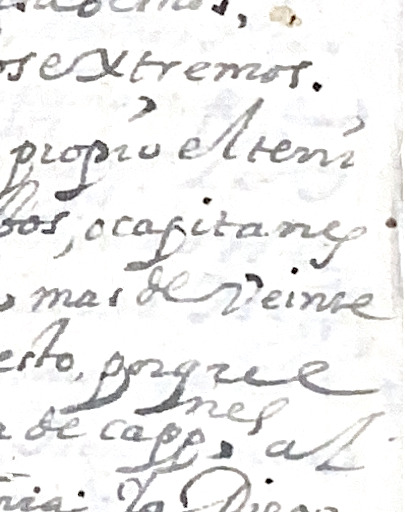 os extremos.
proprio el teni
bos, o capitanes
mas de veinte
esto, porque e
de capp.nes al
Diego